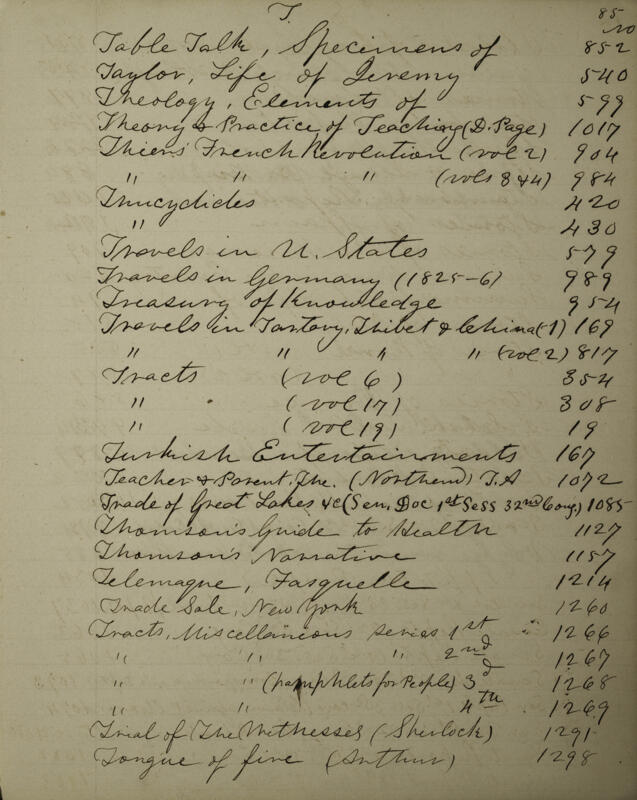 T. 85
No
Table Talk, Specimens of 852
Taylor, Life of Jeremy 540
Theology, Elements of 599
Theory & Practice of Teaching (D. Page) 1017
Thiers' French Revolution (vol 2) 904
" " " (vols 3 & 4) 984
Thucydides 420
" 430
Travels in U. States 579
Travels in Germany (1825-6) 989
Treasury of Knowledge 954
Travels in Tartary, Thibet & China (-1) 169
" " " " (vol 2) 817
Tracts (vol 6) 354
" (vol 17) 308
" (vol 19) 19
Turkish Entertainments 167
Teacher & Parent, The. (Northend) T.A 1072
Trade of Great Lakes &c (Sen. Doc 1st Sess 32nd Cong.) 1085
Thomson's Guide to Health 1127
Thomson's Narrative 1157
Telemaque, Fasquelle 1214
Trade Sale, New York 1260
Tracts, Miscellaneous series 1st " 1266
" " " 2nd 1267
" " (pamphlets for People) 3d 1268
" " 4th 1269
Trial of The Witnesses (Sherlock) 1291
Tongue of fire (Arthur) 1298